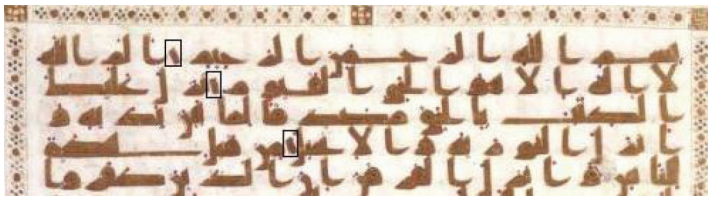 بسم الله الرحمن الرحيم الم الله
لا اله الا هو الحي القيوم نزل عليك
الكتب بالحق مصدقا لما بين يديه و
انزل التوريه والانجيل من قبل هدى
للناس وانزل الفرقان ان الذين كفروا